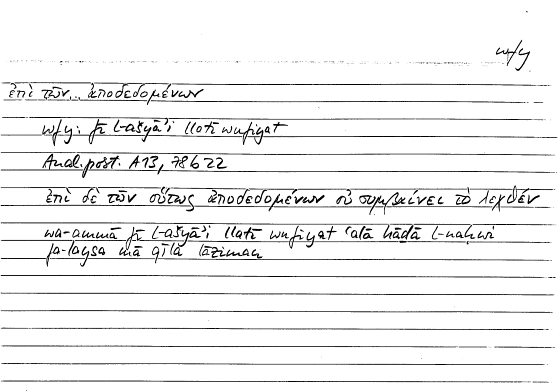 wfy
ἐπὶ τῶν.. ἀποδεδομένων
wfy: fī l-ašyā’i llatī wufiyat
Anal.post. A13, 78b22
ἐπὶ δὲ τῶν οὕτως ἀποδεδομένων οὐ συμβαίνει τὸ λεχθέν
wa-ammā fī l-ašyā’i llatī wufiyat ‘alā hāḏā l-naḥwi
fa-laysa mā qīla lāziman